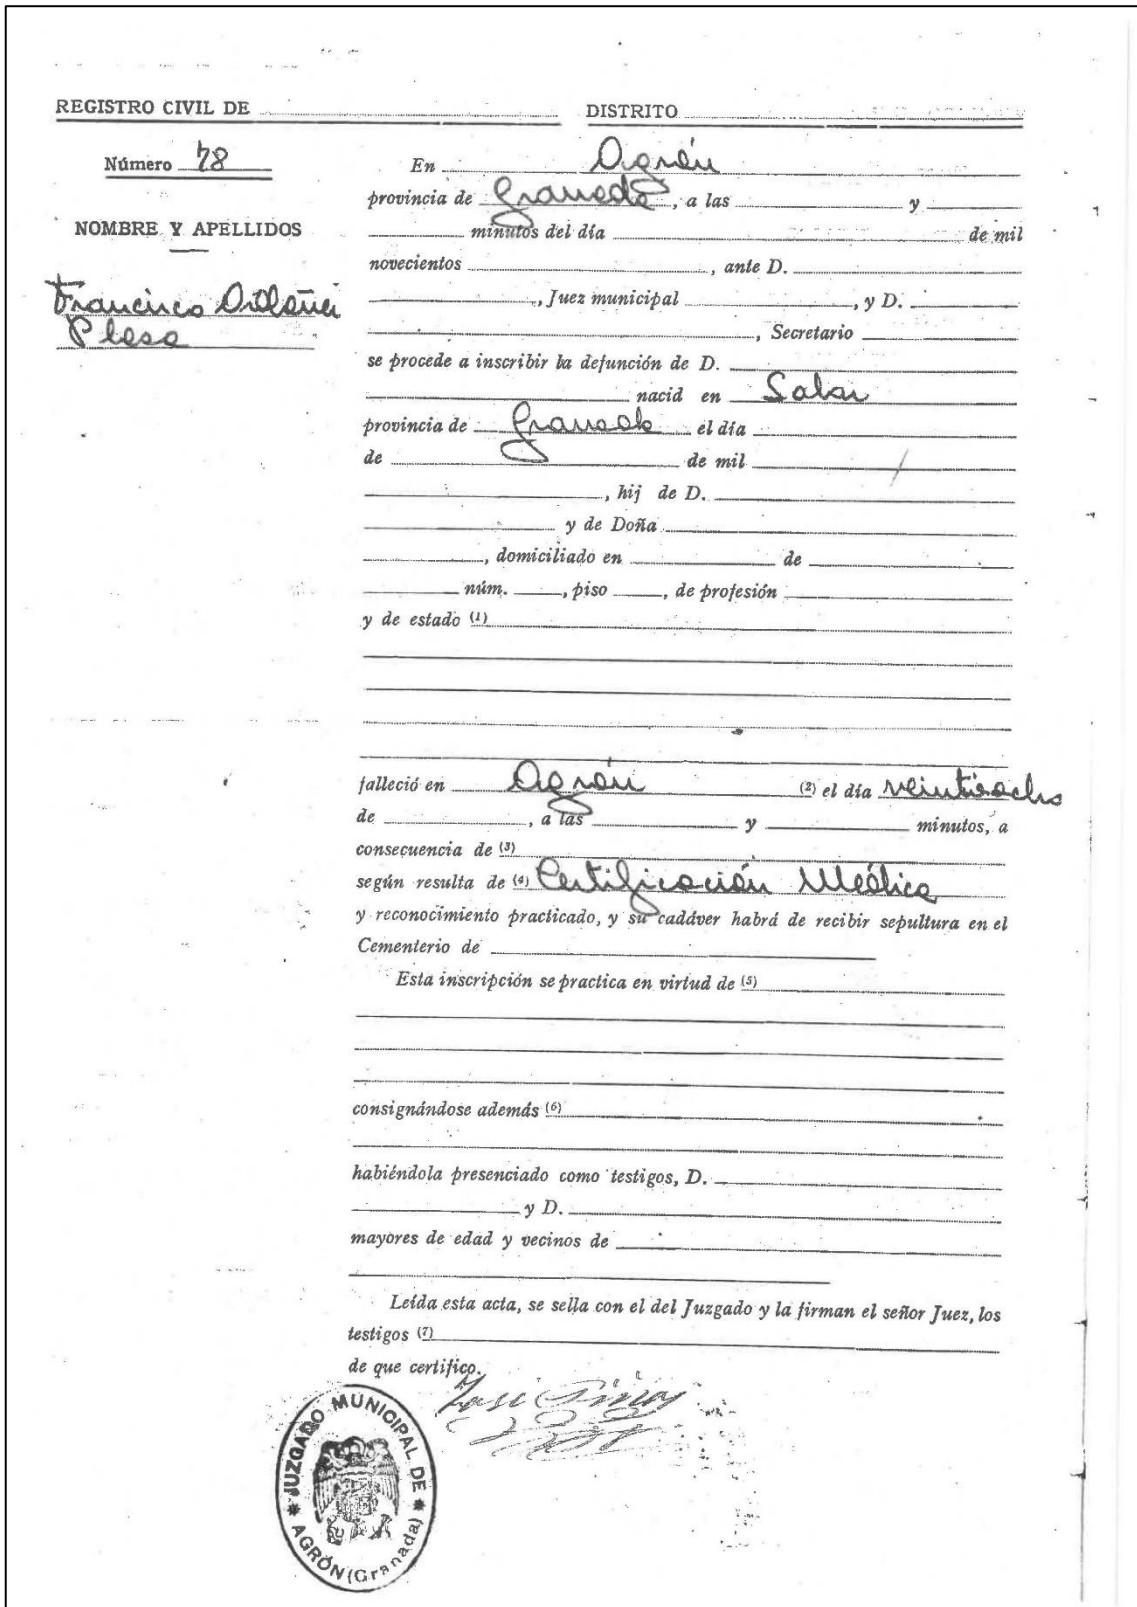 REGISTRO CIVIL DE DISTRITO
Número 78
NOMBRE Y APELLIDOS
Francisco
En Agrón
provincia de Granada, a las y
minutos del día de mil
novecientos , ante D.
, Juez municipal , y D.
, Secretario
se procede a inscribir la defunción de D.
nacid en Salar
provincia de Granada el día
de de mil
, hij de D.
y de Doña
, domiciliado en de
núm. , piso , de profesión
y de estado (1)
falleció en Agrón (2) el día veintiocho
de , a las y minutos, a
consecuencia de (3)
según resulta de (4) Certificación Médica
y reconocimiento practicado, y su cadáver habrá de recibir sepultura en el
Cementerio de
Esta inscripción se practica en virtud de (5)
consignándose además (6)
habiéndola presenciado como testigos, D.
y D.
mayores de edad y vecinos de
Leída esta acta, se sella con el del Juzgado y la firman el señor Juez, los
testigos (7)
de que certifico.
JUZGADO MUNICIPAL DE
AGRÓN (Granada)